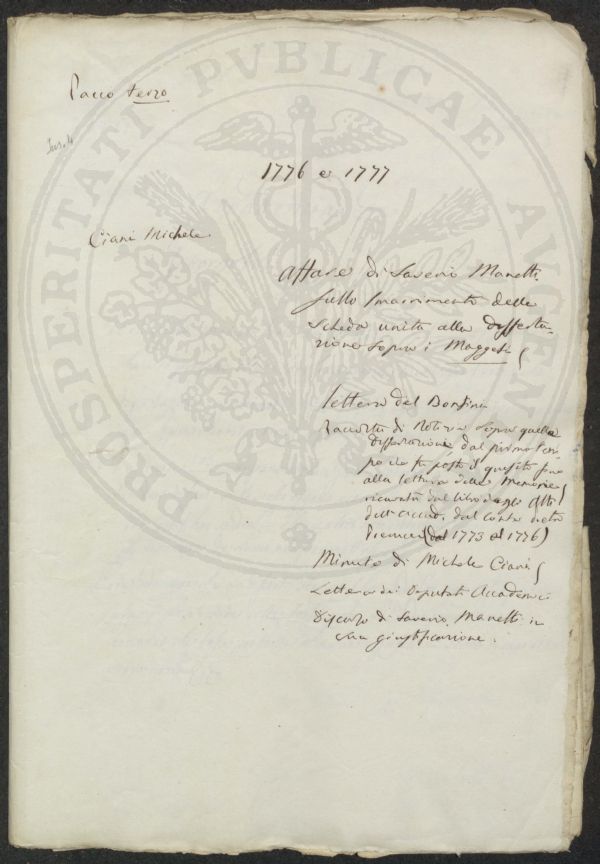 Pacco terzo
Ins. 4
1776 e 1777
Ciani Michele
Affare di Saverio Manetti
sullo smarrimento della
scheda unita alla disserta-
zione sopra i Maggesi
Lettera del Bonsini
Raccolta di Notizie sopra quella
dissertazione dal primo tem-
po che fu posto il quesito fino
alla lettura delle Memorie
ricavata dal libro degli Atti
dell'Accad. dal conte
(dal 1773 al 1776)
Minute di Michele Ciani
Lettera dei Deputati Accademici
Discorso di Saverio Manetti in
sua giustificazione.
PROSPERITATI PVBLICAE AVGENDAE